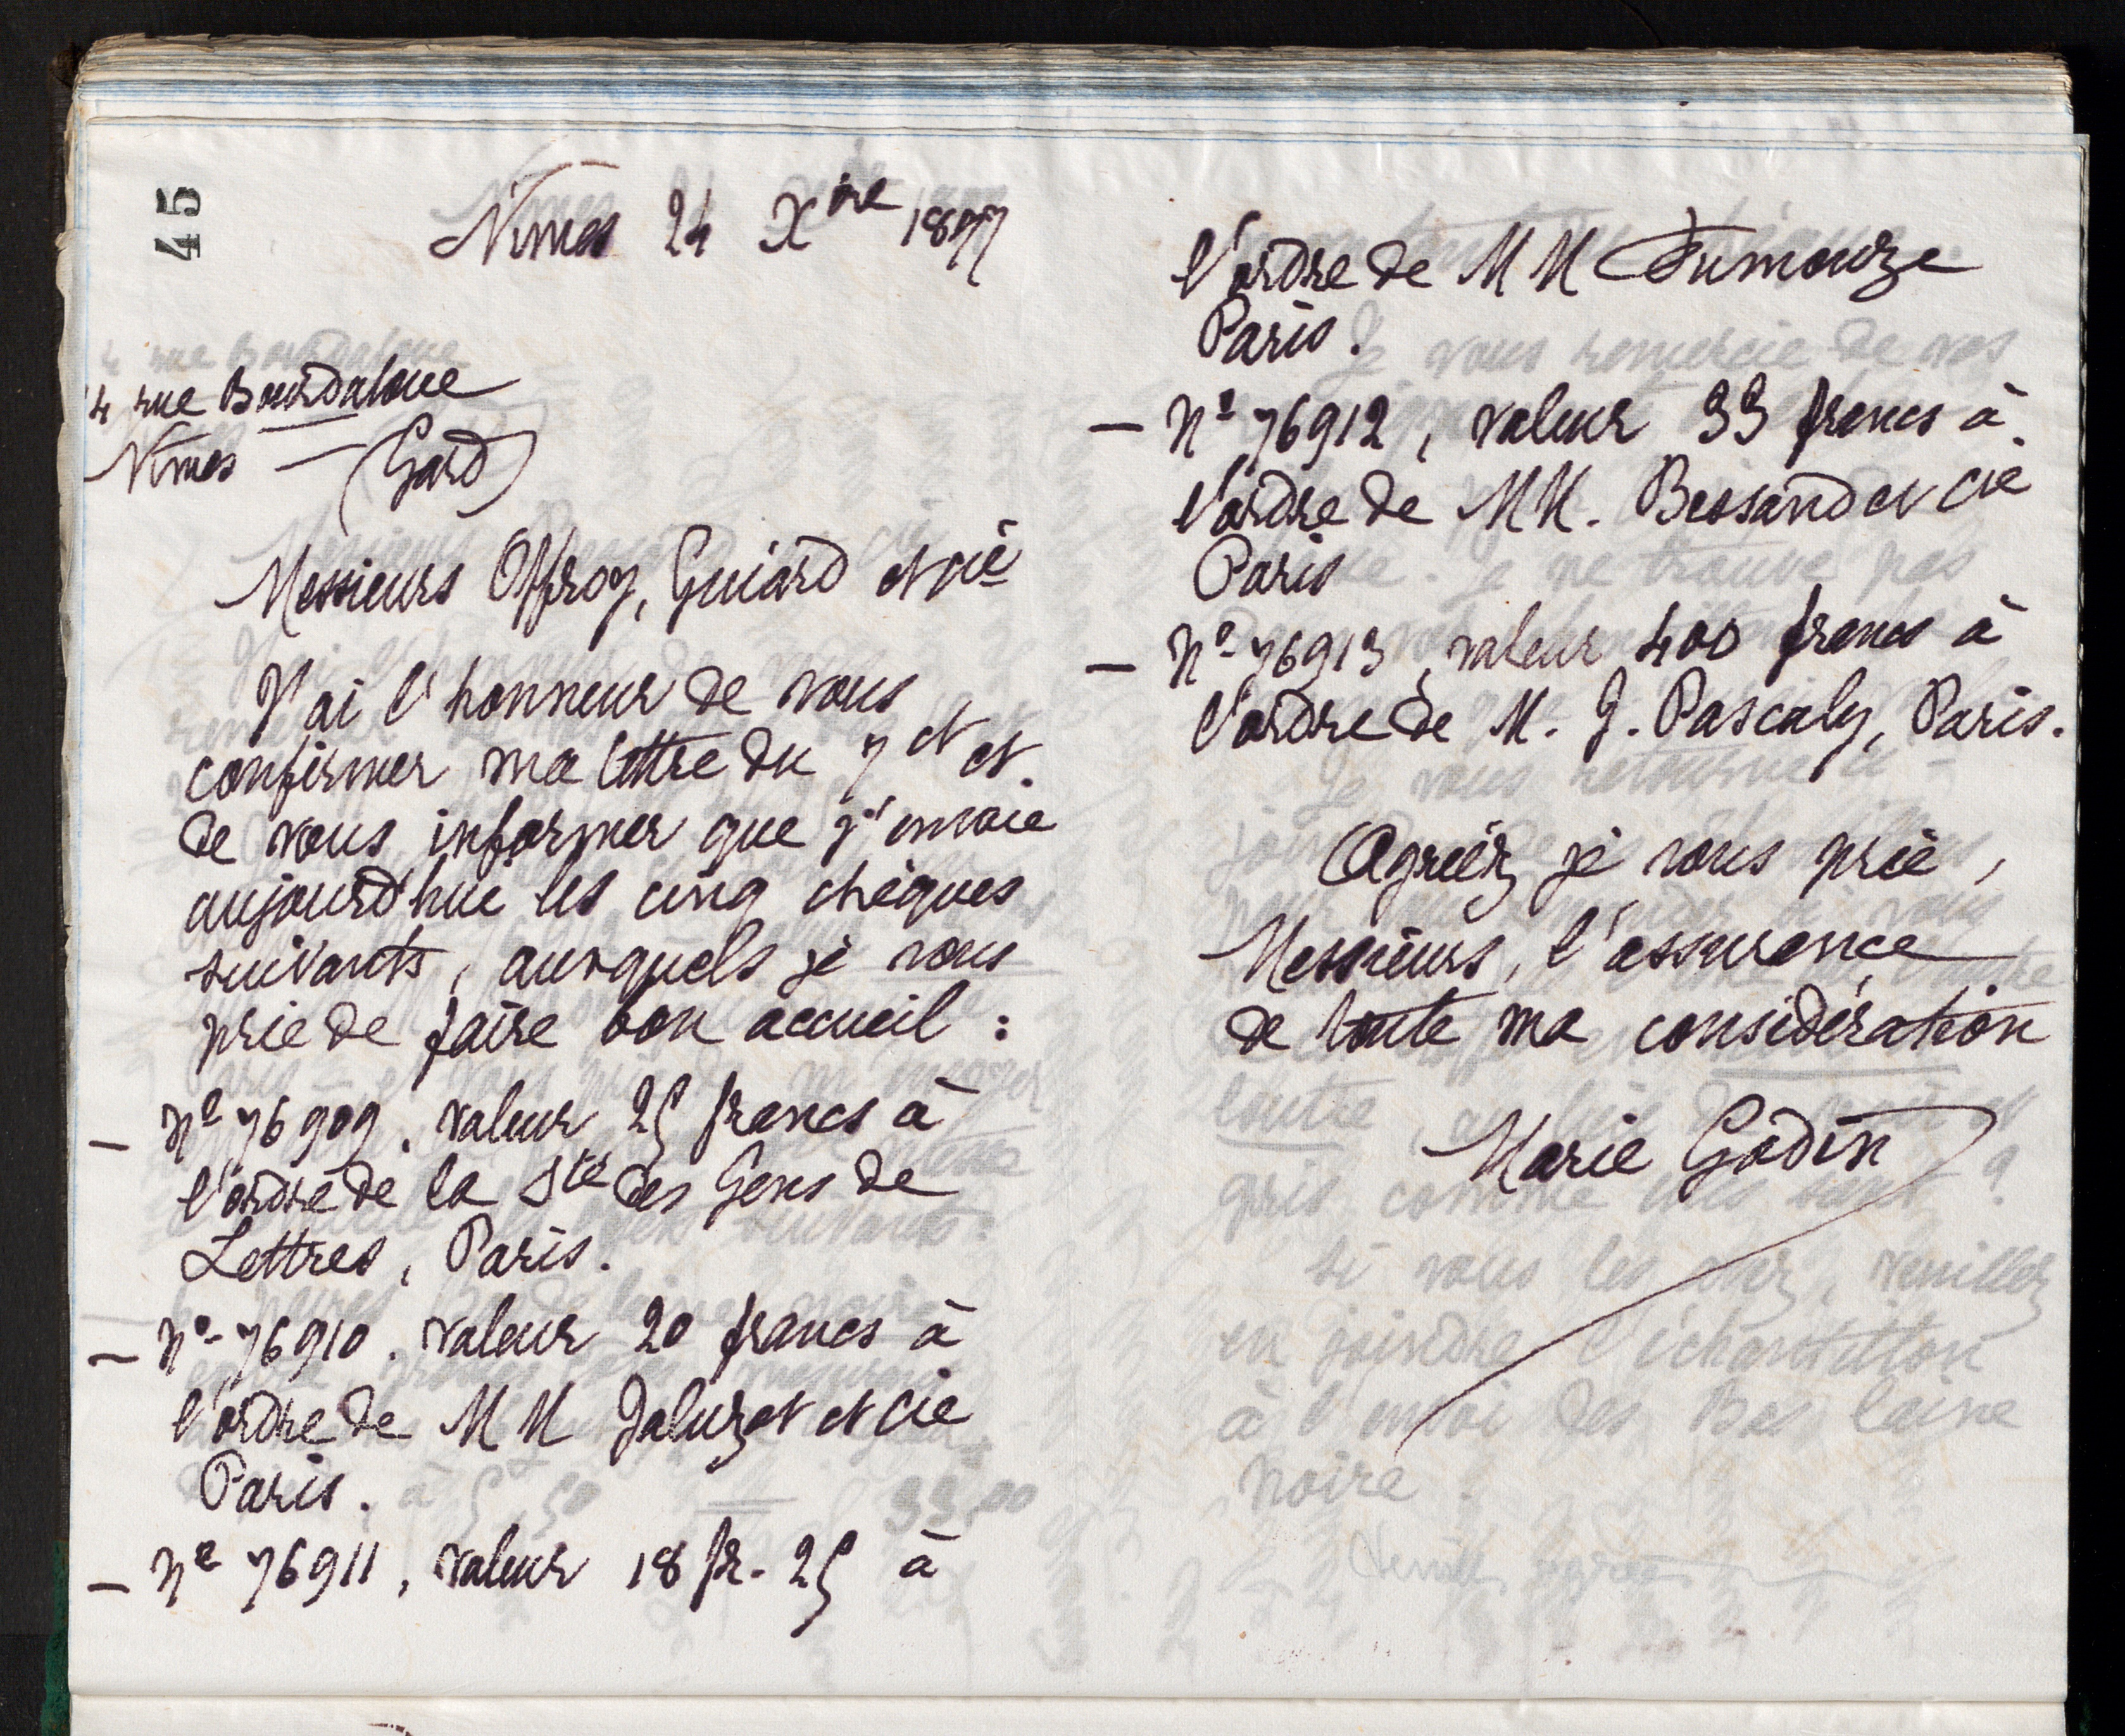 45
Nimes 24 Xbre 1897
14 rue Bourdaloue
Nimes — (Gard)
Messieurs Offroy, Guiard et cie
J'ai l'honneur de vous
confirmer ma lettre du 7 ct et
de vous informer que j'envoie
aujourd'hui les cinq chèques
suivants, auxquels je vous
prie de faire bon accueil :
— No 76909. valeur 25 francs à
l'ordre de la Sté des Gens de
Lettres, Paris.
— No 76910. valeur 20 francs à
l'ordre de MM Jaluzot et Cie
Paris.
— No 76911, valeur 18 fr. 25 à
l'ordre de MM Fumouze
Paris.
— No 76912, valeur 33 francs à
l'ordre de MM. Bessand et Cie
Paris
— No 76913, valeur 400 francs à
l'ordre de M. J. Pascaly, Paris.
Agréez je vous prie,
Messieurs, l'assurance
de toute ma considération
Marie Godin